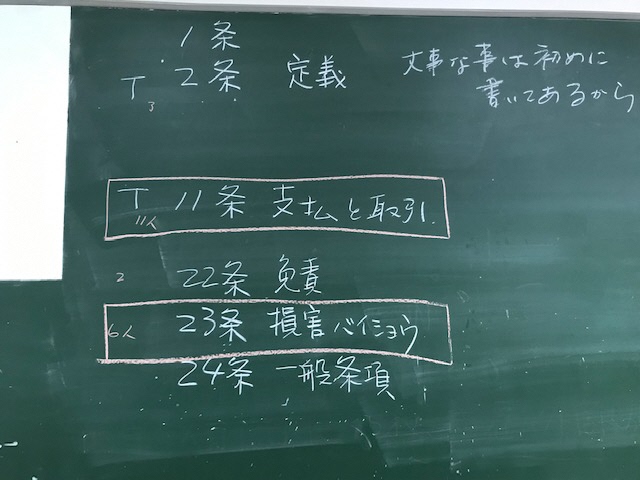 1条
T 2条 定義
3
大事な事は初めに
書いてあるから
T 11条 支払と取引.
11人
2 22条 免責
6人 23条 損害バイショウ
24条 一般条項